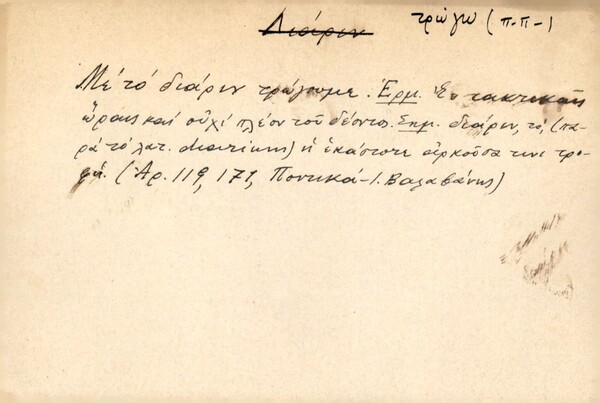 Διάριν τρώγω (π.π-)
Μέ τό διάριν τρώγουμε. Ἑρμ. Ἐν τακτικαῖς
ὥραις καί οὐχί πλέον τοῦ δέοντος. Σημ. διάριν, τό, (πα-
ρά τό λατ. diarium) ἡ ἑκάστοτε ἀρκοῦσά τινι τρο-
φή. (Ἀρ. 119, 171, Ποντικά - Ι. Βαλαβάνης)